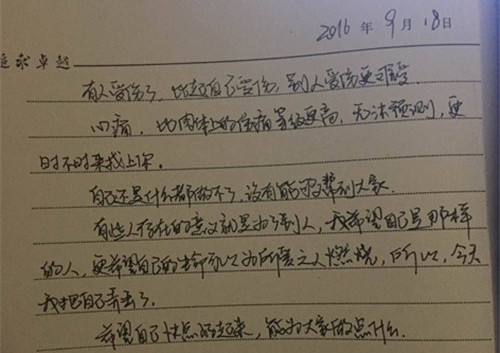 2016年9月18日
追求卓越
有人受伤了,比起自己受伤,别人受伤更难受
心痛,比肉体上的伤痛等级更高,无法预测,更
时不时来找上你。
自己还是什么都做不了,没有能够帮到大家.
有些人存在的意义就是为了别人,我希望自己是那样
的人,更希望自己的生命可以为所爱之人燃烧,所以,今天
我把自己弄丢了.
希望自己快点好起来,能为大家做点什么.